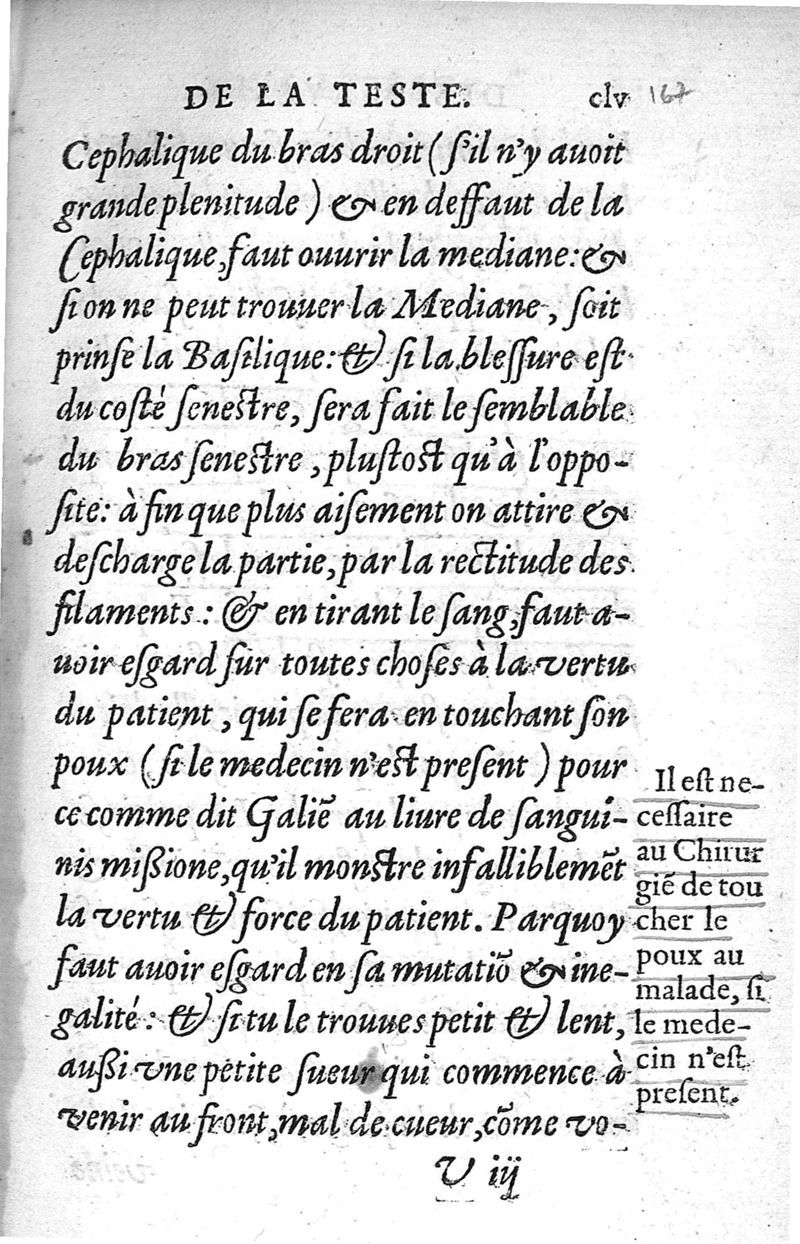 DE LA TESTE. clv 167
Cephalique du bras droit (s'il n'y auoit
grande plenitude) & en deffaut de la
Cephalique, faut ouurir la mediane: &
si on ne peut trouuer la Mediane, soit
prinse la Basilique: & si la blessure est
du costé senestre, sera fait le semblable
du bras senestre, plustost qu'à l'oppo-
site: à fin que plus aisement on attire &
descharge la partie, par la rectitude des
filaments: & en tirant le sang, faut a-
uoir esgard sur toutes choses à la vertu
du patient, qui se fera en touchant son
poux (si le medecin n'est present) pour
ce comme dit Galiē au liure de sangui-
nis mißione, qu'il monstre infalliblemēt
la vertu & force du patient. Parquoy
faut auoir esgard en sa mutatiō & ine-
galité: & si tu le trouues petit & lent,
außi vne petite sueur qui commence à
venir au front, mal de cueur, cōme vo-
V iij
Il est ne-
cessaire
au Chirur
giē de tou
cher le
poux au
malade, si
le mede-
cin n'est
present.